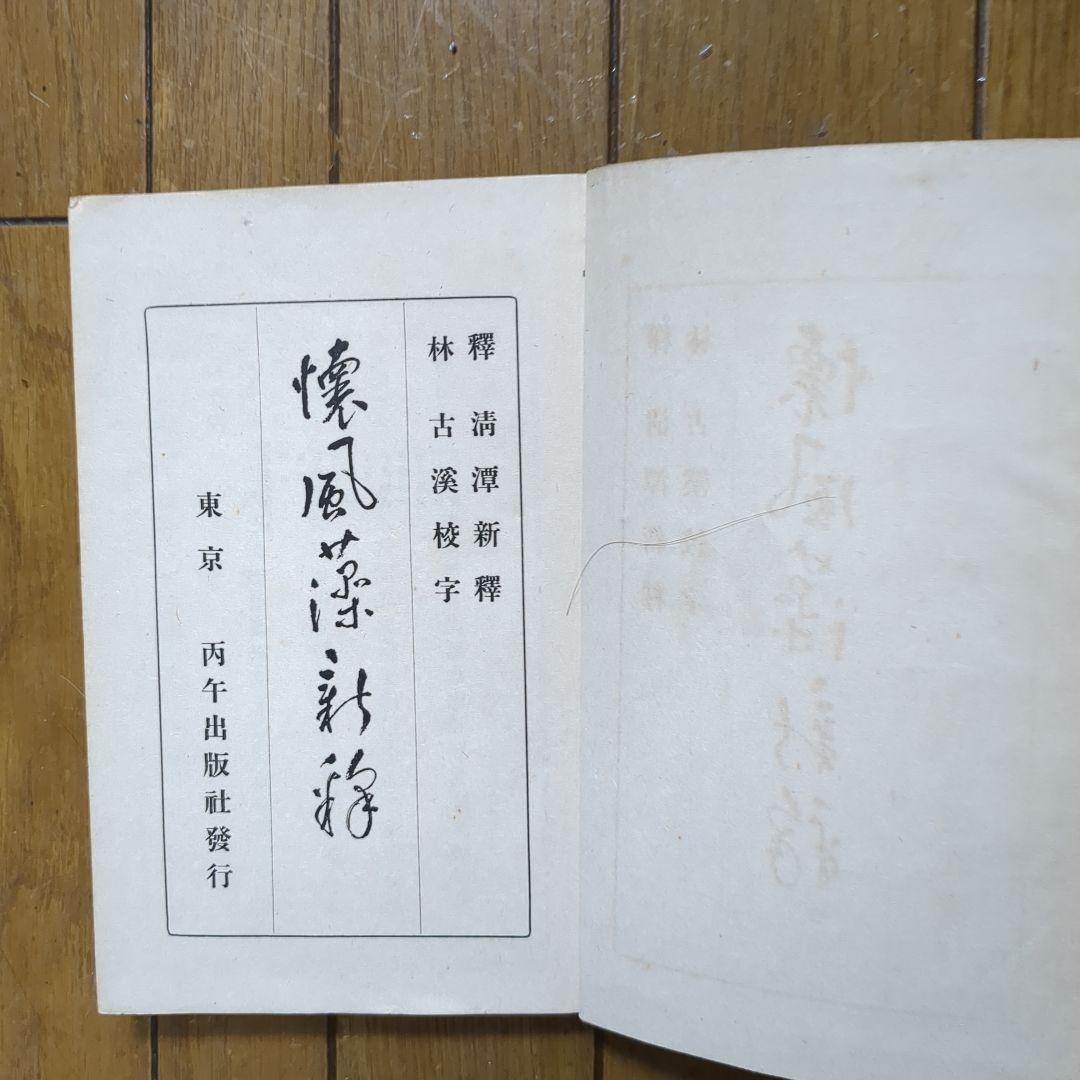 釋 淸潭新釋
林 古溪校字
懷風藻新釋
東京 丙午出版社發行